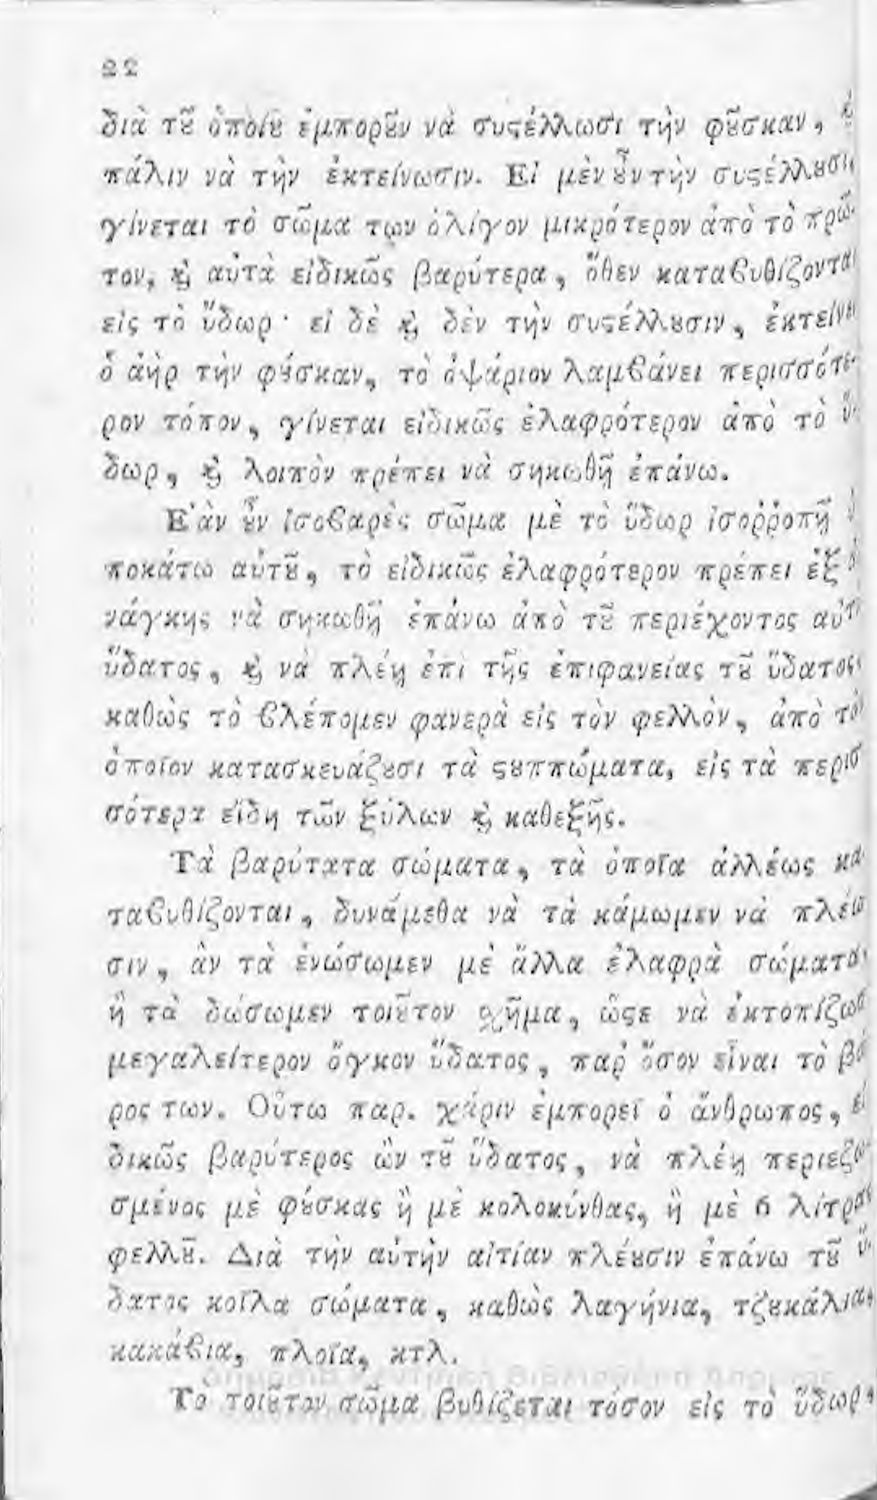 22
διὰ τȣ͂ ὁποίȣ ἐμπορȣ͂ν νὰ συϛέλλωσι τὴν φȣ͂σκαν,
πάλιν νὰ τὴν ἐκτείνωσιν. Εἰ μὲν ȣ̓͂ν τὴν συϛέλλȣσι,
γίνεται τὸ σῶμα των ὀλίγον μικρότερον ἀπὸ τὸ πρῶ-
τον, ϗ̀ αὐτὰ εἰδικῶς βαρύτερα, ὅθεν καταϐυθίζονται
εἰς τὸ ὕδωρ· εἰ δὲ ϗ̀ δὲν τὴν συϛέλλȣσιν, ἐκτείνει
ὁ ἀὴρ τὴν φȣ́σκαν, τὸ ὀψάριον λαμϐάνει περισσότε-
ρον τόπον, γίνεται εἰδικῶς ἐλαφρότερον ἀπὸ τὸ ὕ-
δωρ, ϗ̀ λοιπὸν πρέπει νὰ σηκωθῇ ἐπάνω.
Ἐὰν ȣ̓͂ν ἰσοϐαρὲς σῶμα μὲ τὸ ὕδωρ ἰσοῤῥοπῇ ὑ-
ποκάτω αὐτȣ͂, τὸ εἰδικῶς ἐλαφρότερον πρέπει ἐξ ἀ-
νάγκης νὰ σηκωθῇ ἐπάνω ἀπὸ τȣ͂ περιέχοντος αὐτὸ
ὕδατος, ϗ̀ νὰ πλέῃ ἐπὶ τῆς ἐπιφανείας τȣ͂ ὕδατος,
καθὼς τὸ ϐλέπομεν φανερὰ εἰς τὸν φελλὸν, ἀπὸ τὸν
ὁποῖον κατασκευάζȣσι τὰ ϛȣππώματα, εἰς τὰ περισ-
σότερα εἴδη τῶν ξύλων ϗ̀ καθεξῆς.
Τὰ βαρύτατα σώματα, τὰ ὁποῖα ἀλλέως κα-
ταϐυθίζονται, δυνάμεθα νὰ τὰ κάμωμεν νὰ πλέω-
σιν, ἂν τὰ ἑνώσωμεν μὲ ἄλλα ἐλαφρὰ σώματα,
ἢ τὰ δώσωμεν τοιȣ͂τον σχῆμα, ὥϛε νὰ ἐκτοπίζωσι
μεγαλείτερον ὄγκον ὕδατος, παρ' ὅσον εἶναι τὸ βά-
ρος των. Οὕτω παρ. χάριν ἐμπορεῖ ὁ ἄνθρωπος, εἰ-
δικῶς βαρύτερος ὢν τȣ͂ ὕδατος, νὰ πλέῃ περιεζω-
σμένος μὲ φȣ́σκας ἢ μὲ κολοκύνθας, ἢ μὲ 6 λίτρας
φελλȣ͂. Διὰ τὴν αὐτὴν αἰτίαν πλέȣσιν ἐπάνω τȣ͂ ὕ-
δατος κοῖλα σώματα, καθὼς λαγήνια, τζȣκάλια,
κακάϐια, πλοῖα, κτλ.
Τὸ τοιȣ͂τον σῶμα βυθίζεται τόσον εἰς τὸ ὕδωρ,